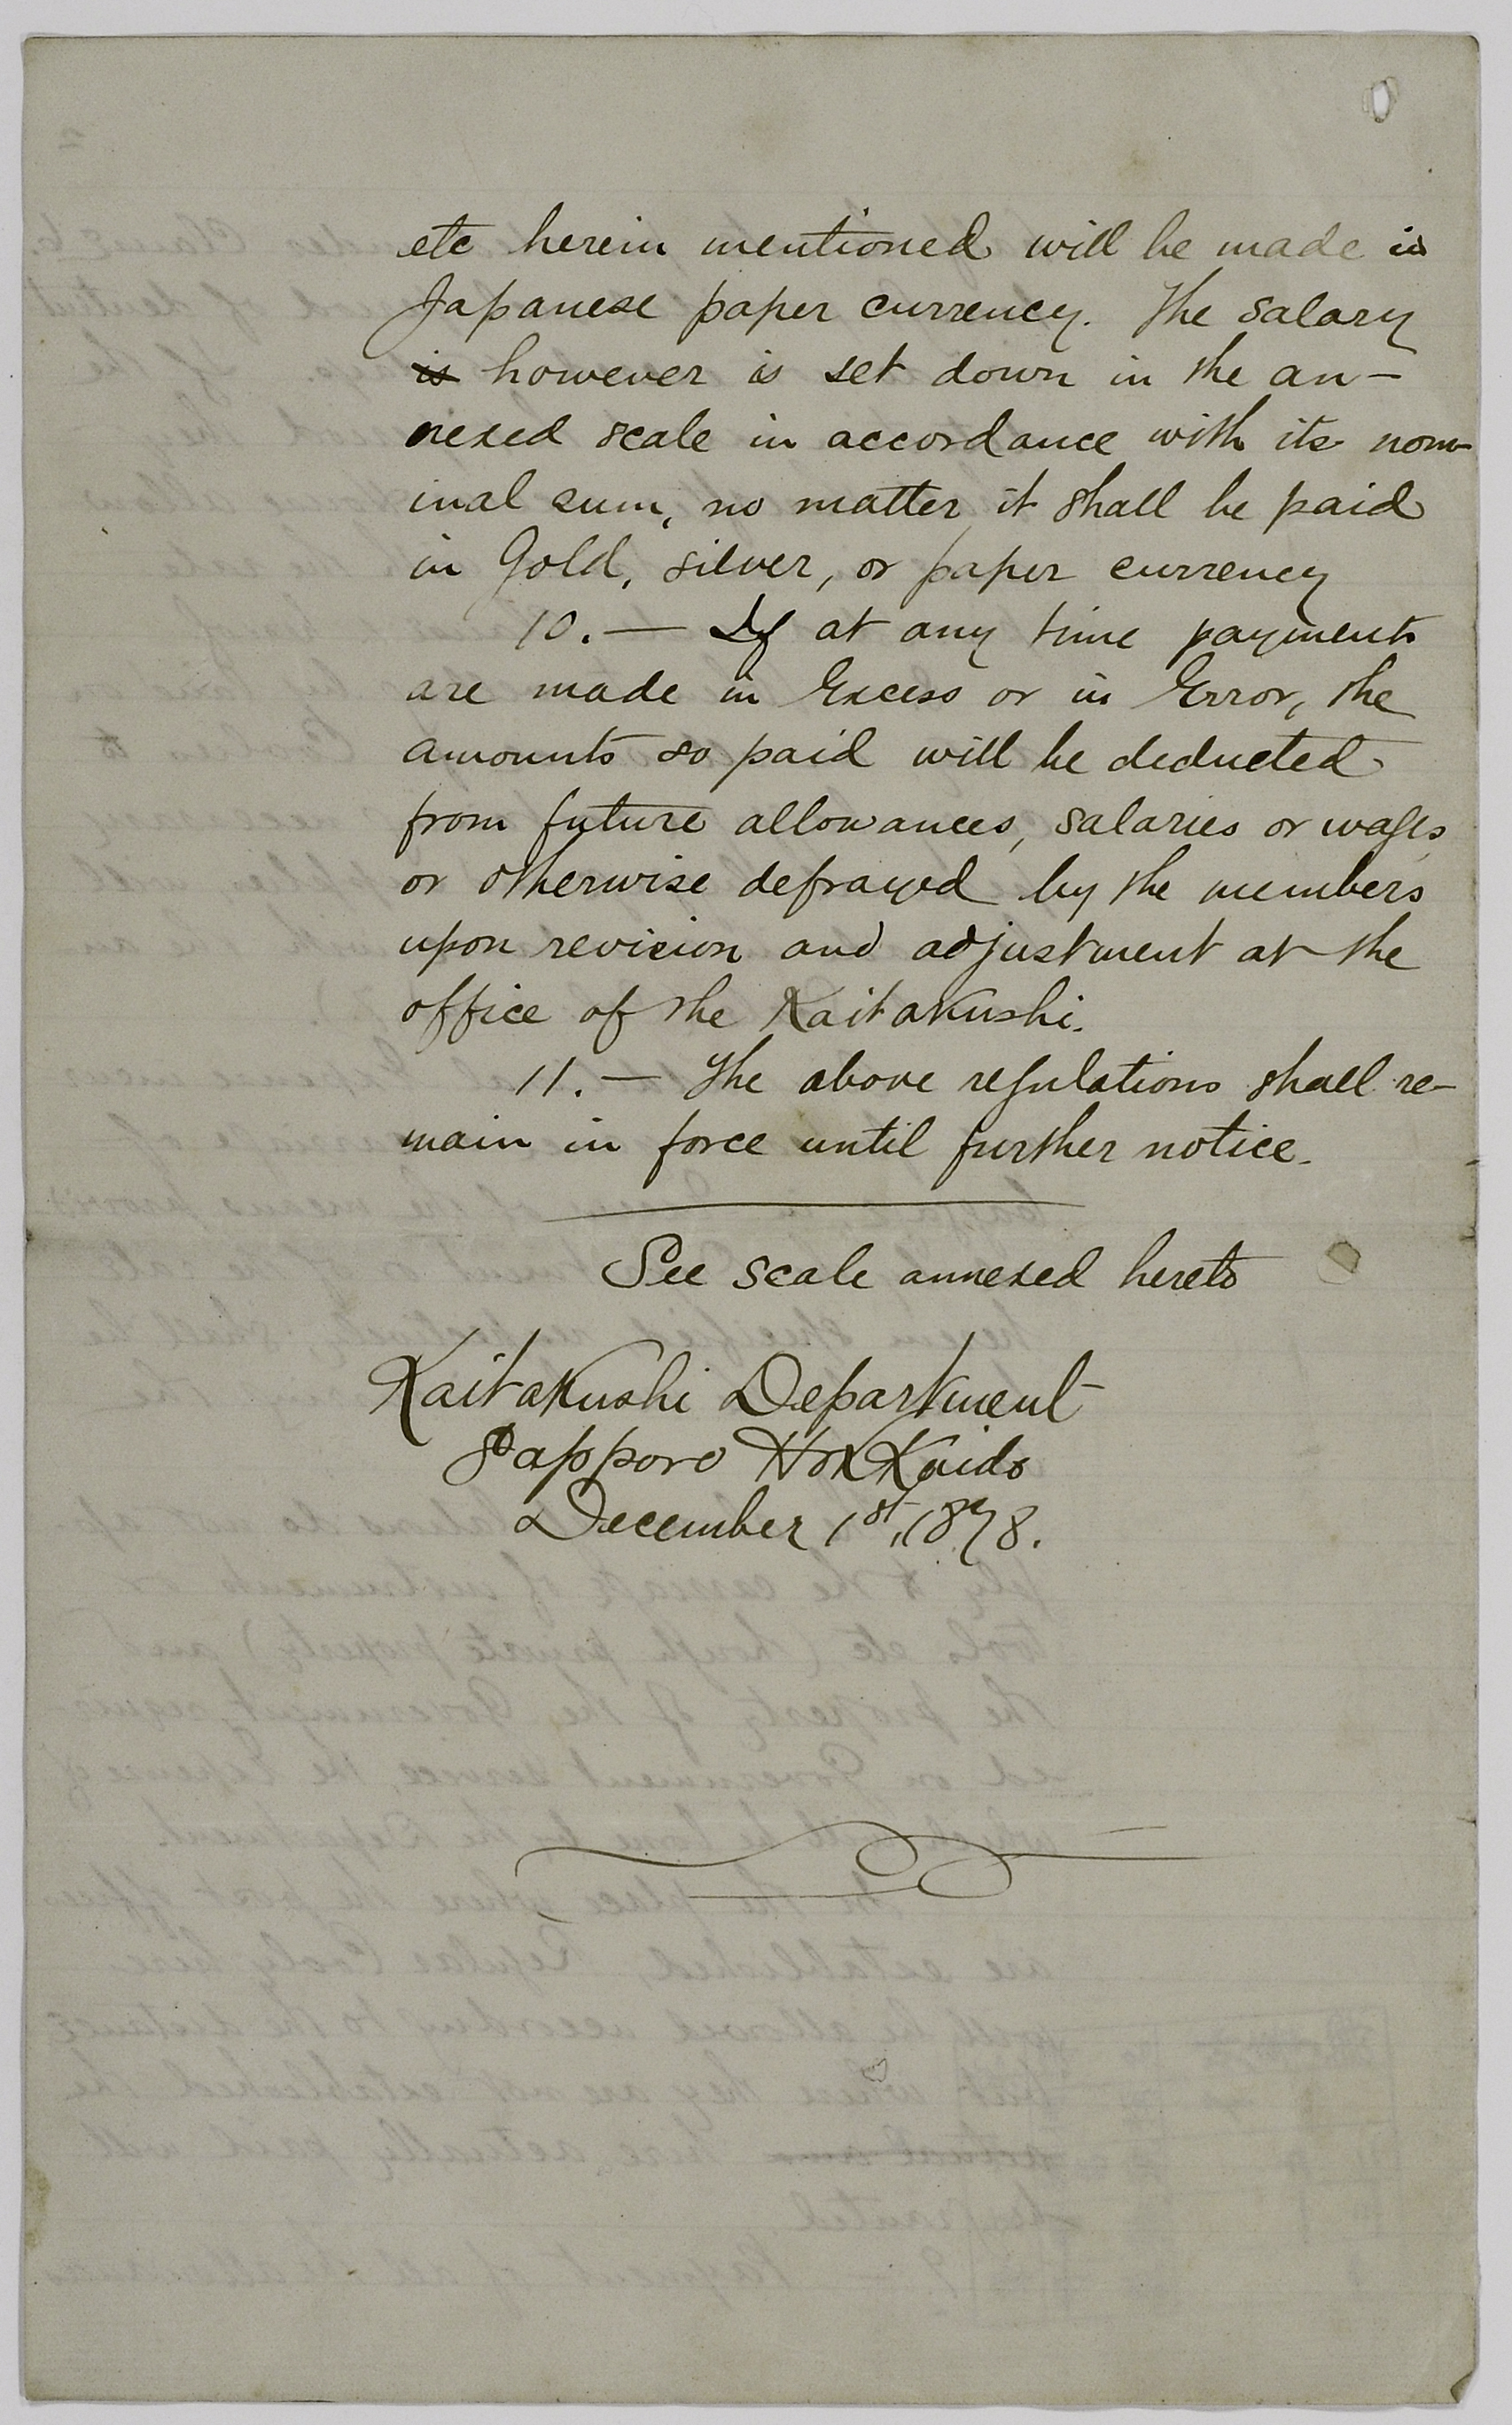 etc herein mentioned will be made in
Japanese paper currency. The salary
is however is set down in the an-
nexed scale in accordance with its nom-
inal sum, no matter it shall be paid
in Gold, silver, or paper currency
10.— If at any time payments
are made in Excess or in Error, the
amounts so paid will be deducted
from future allowances, salaries or wages
or otherwise defrayed by the members
upon revision and adjustment at the
office of the Kaitakushi.
11.— The above regulations shall re-
main in force until further notice.
See scale annexed hereto
Kaitakushi Department
Sapporo Hokkaido
December 1st, 1878.